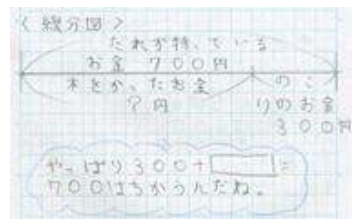 〈線分図〉
だれが持っている
お金 700円
本をかったお金
?円
のこ
りのお金
300円
やっぱり300+□=
700はちがうんだね。